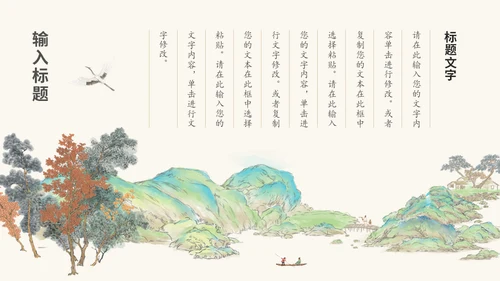 标题文字
请在此输入您的文字内
容单击进行修改。或者
复制您的文本在此框中
选择粘贴。请在此输入
您的文字内容，单击进
行文字修改。或者复制
您的文本在此框中选择
粘贴。请在此输入您的
文字内容，单击进行文
字修改。
输入标题